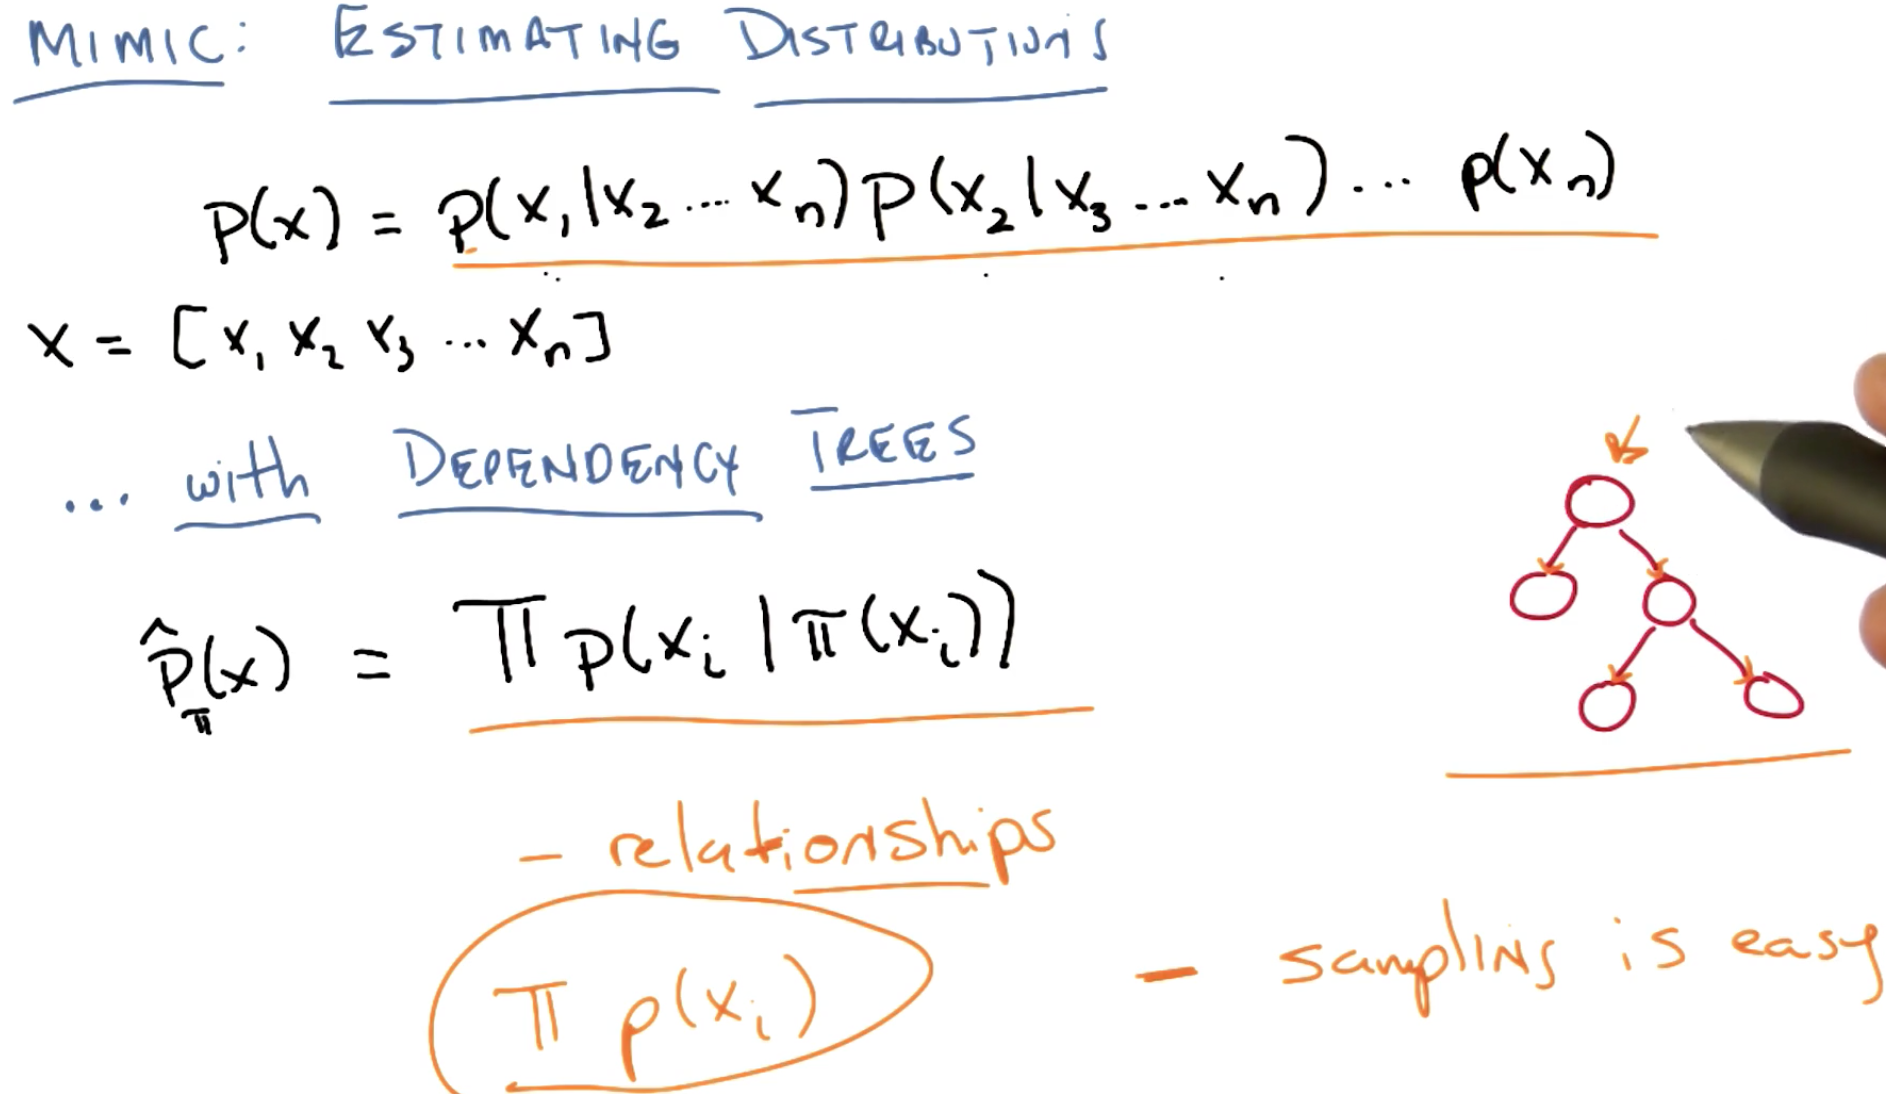 MIMIC: ESTIMATING DISTRIBUTIONS
P(x) = p(x₁|x₂ ... xₙ) p(x₂|x₃ ... xₙ) ... p(xₙ)
x = [x₁ x₂ x₃ ... xₙ]
... with DEPENDENCY TREES
p̂_π(x) = Π p(xᵢ | π(xᵢ))
- relationships
Π p(xᵢ)
- sampling is easy